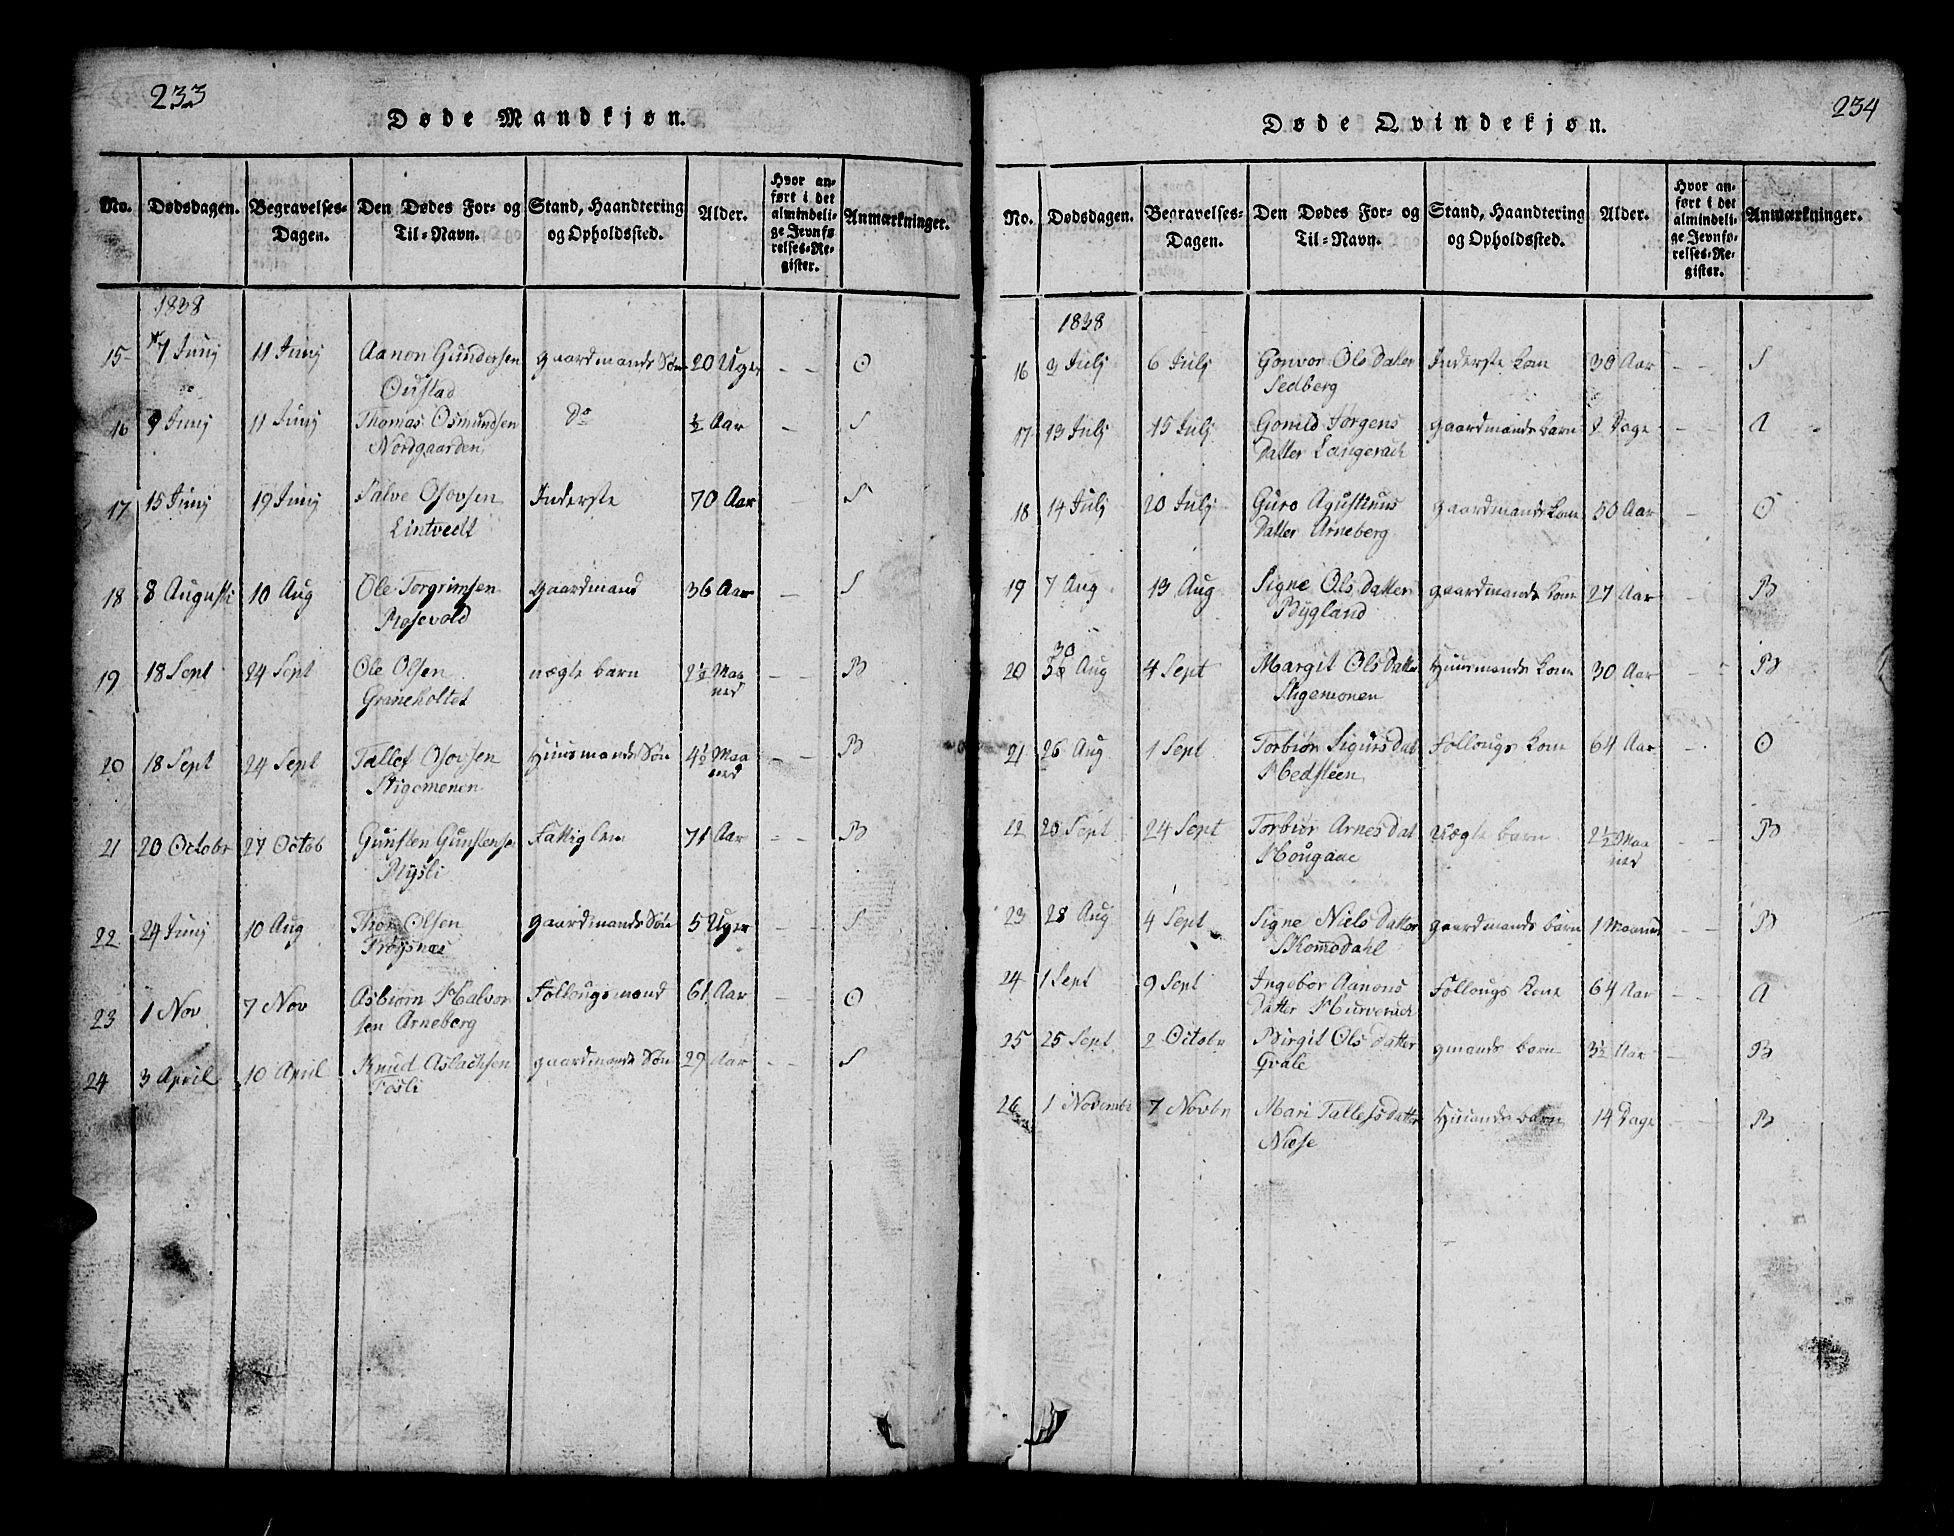 233
Døde Mandkjøn.
No. Dødsdagen. Begravelses-Dagen. Den Dødes For- og Til-Navn. Stand, Haandtering og Opholdssted. Alder. Hvor anført i det almindelige Jevnførelses-Register. Anmærkninger.
1838
15 7 Junj 11 Junj Aanon Gundersen gaardmands Søn 20 Uger - - O
Oustad
16 9 Junj 11 Junj Thomas Osmundsen Do ½ Aar - S
Nordgaarden
17 15 Junj 19 Junj Salve Osovsen Inderste 70 Aar - S
Lintvedt
18 8 Augusti 10 Aug Ole Torgrimsen gaardmand 36 Aar - S
Rosevold
19 18 Sept 24 Sept Ole Olsen nægte barn 2½ Maa - - B
Graneholtet ned
20 18 Sept 24 Sept Tallef Osovsen Huusmands Søn 4½ Maa - - B
Stigemonen ned
21 20 Octobr 27 Octob Gunsten Gunstense Fattiglem 71 Aar - - B
Rysli
22 24 Junj 10 Aug Thor Olsen gaardmands Søn 5 Uger - - S
Frøysnæs
23 1 Nov 7 Nov Asbiorn Halvor Follougsmand 61 Aar - - O
sen Arneberg
24 3 April 10 April Knud Aslachsen gaardmands Søn 29 Aar - - S
Fosli
234
Døde Qvindekjøn.
No. Dødsdagen. Begravelses-Dagen. Den Dødes For- og Til-Navn. Stand, Haandtering og Opholdssted. Alder. Hvor anført i det almindelige Jevnførelses-Register. Anmærkninger.
1838
16 3 Julj 6 Julj Gonvor Ols Datter Inderste Kone 30 Aar - - S
Sedberg
17 13 Julj 15 Julj Gonild Jørgens gaardmands barn Dage - - A
Datter Langerach
18 14 Julj 20 Julj Guro Agustinus gaardmands Kone 50 Aar - O
Datter Arneberg
19 7 Aug 13 Aug Signe Ols Datter gaardmands Kone 27 Aar - B
Bygland
30
20 Aug 4 Sept Margit Ols Datter Huusmands Kone 30 Aar - - B
Stigemonen
21 26 Aug 1 Sept Torbiør Sigursdat Follougs Kone 64 Aar - O
Hedsteen
22 20 Sept 24 Sept Torbiør Arnesdat Uægte barn 2½ Maa - - B
Hougaae ned
23 28 Aug 4 Sept Signe Niels Datter gaardmands barn 1 Maaned - - B
Skomedahl
24 1 Sept 9 Sept Ingebor Aanons Follougs Kone 64 Aar - - A
Datter Hurverach
25 25 Sept 2 Octobr Birgit Ols Datter gmands barn 3½ Aar - B
Qvale
26 1 Novembr 7 Novbr Mari Tallefsdatter Humands barn 14 Dage - - B
Næse